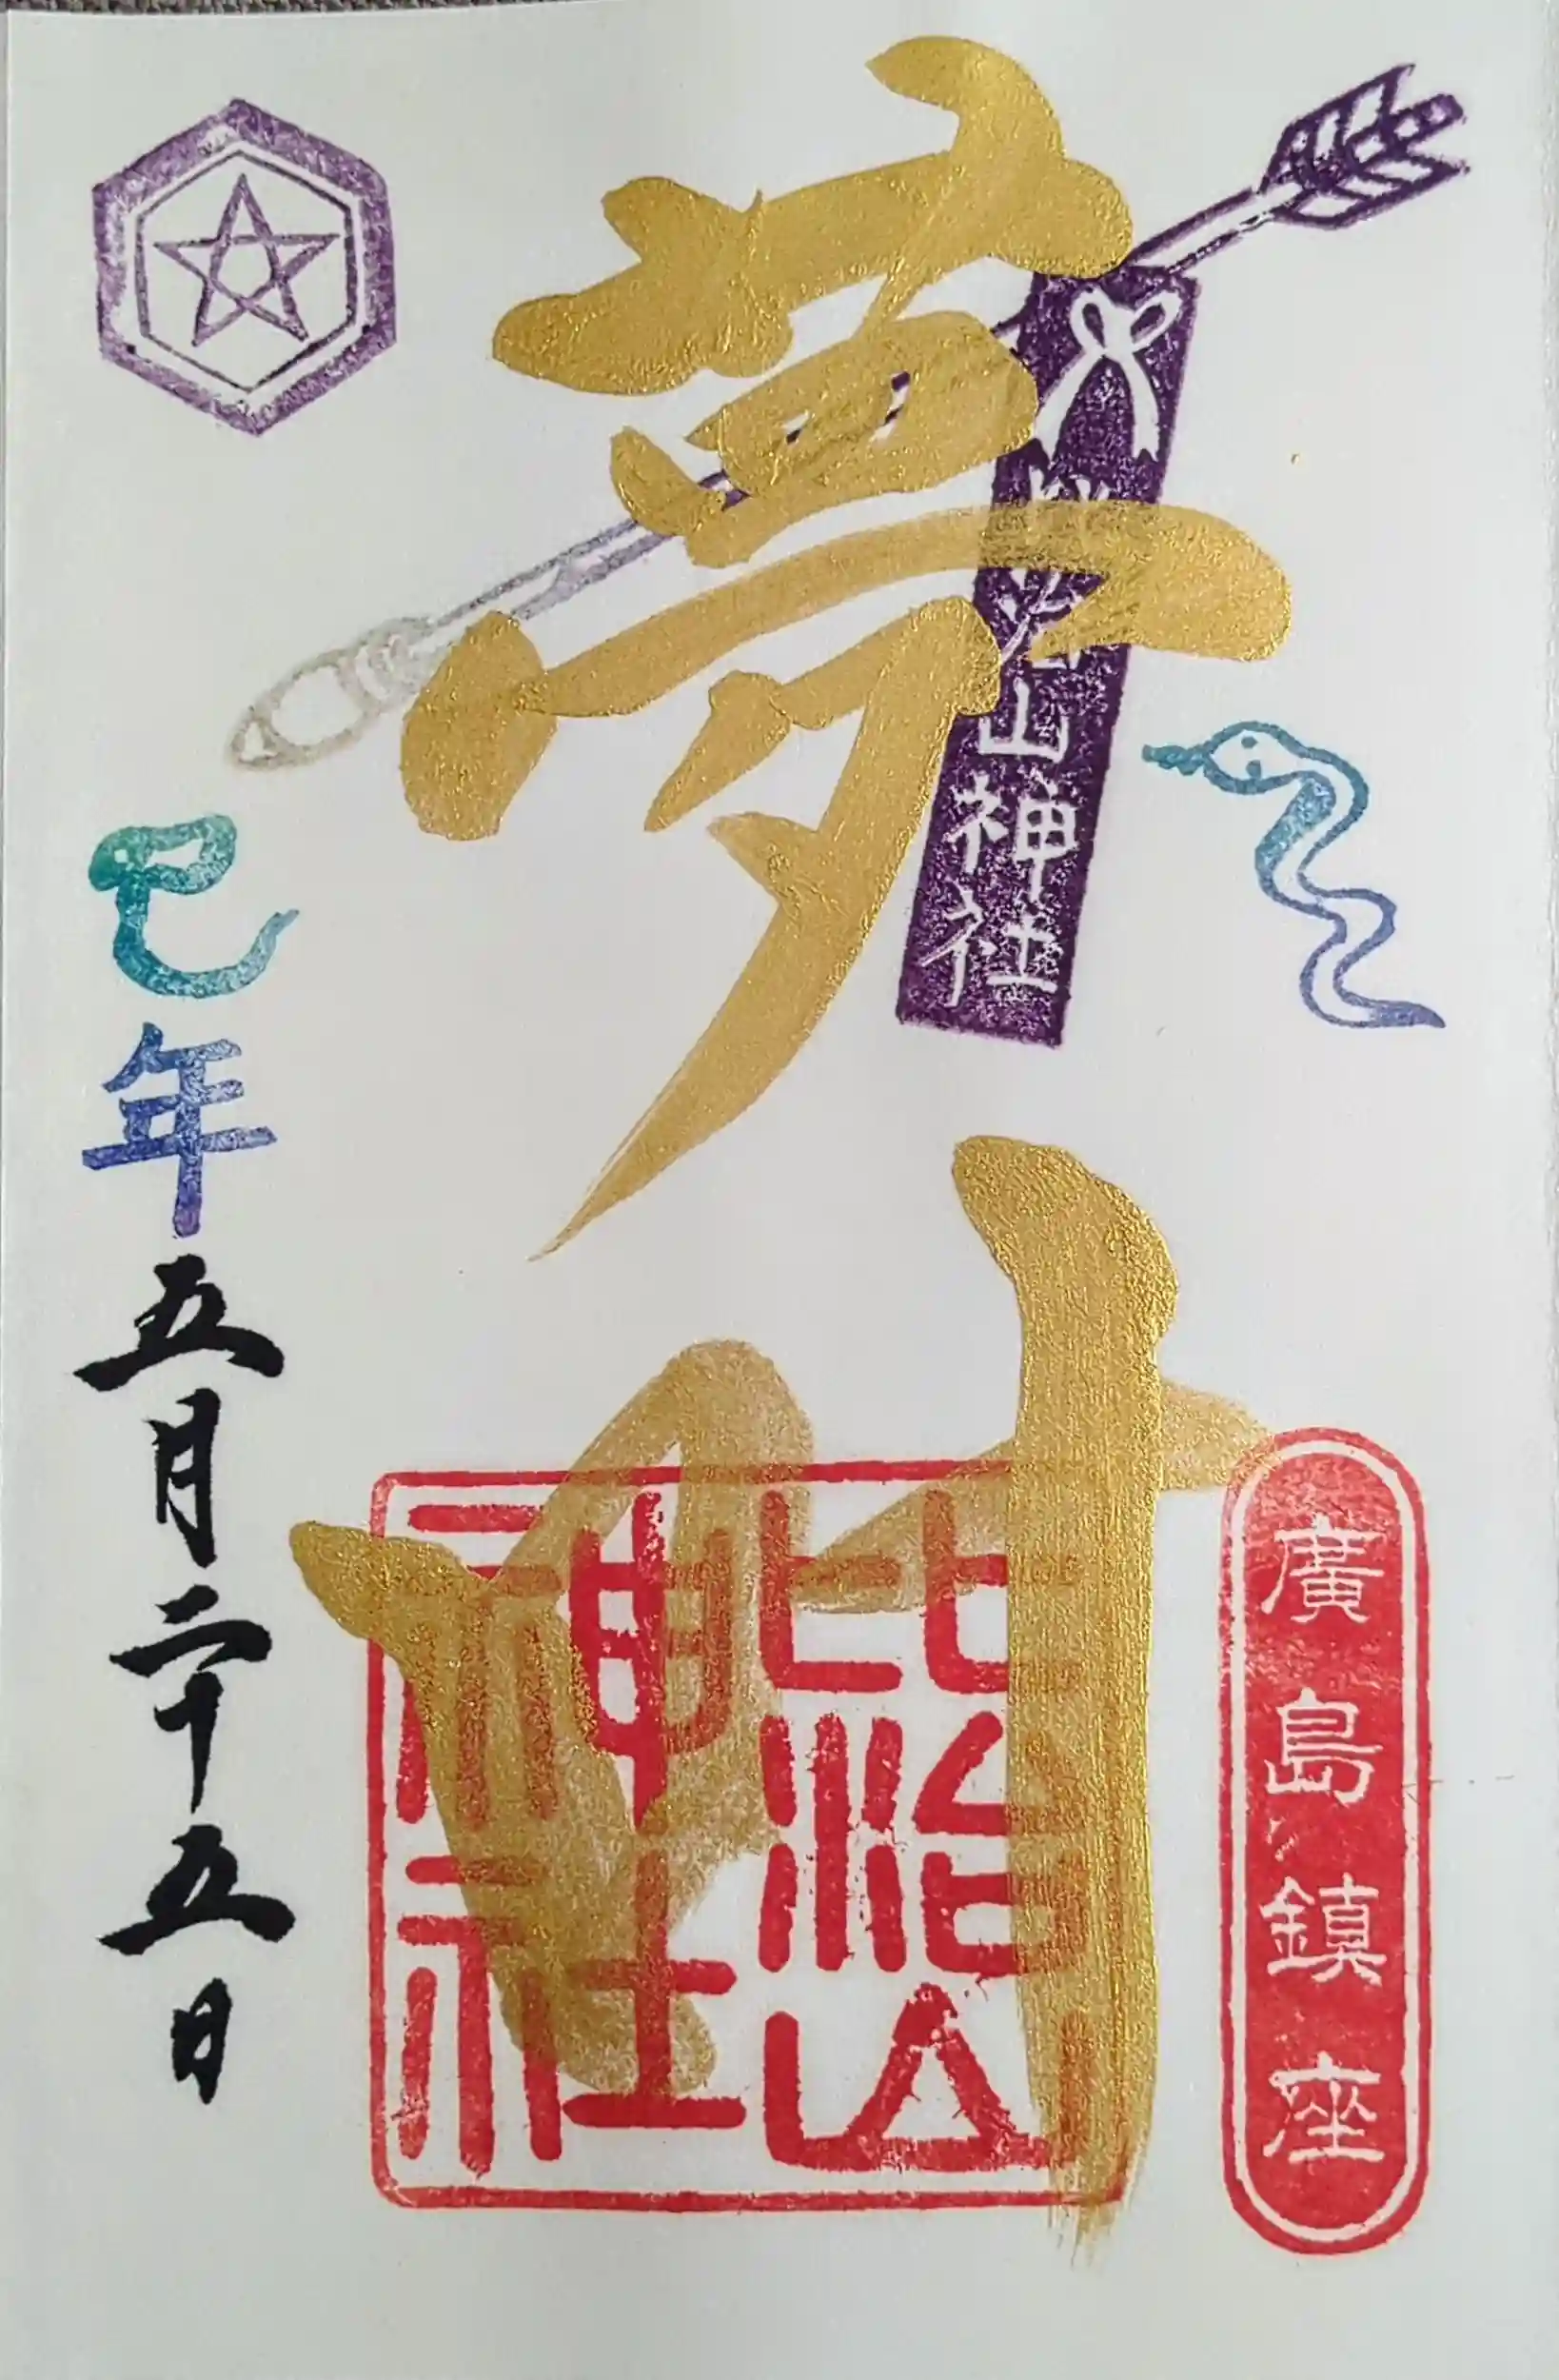 廣島鎮座
夢叶
比治山神社
比治山神社
巳年五月二十五日